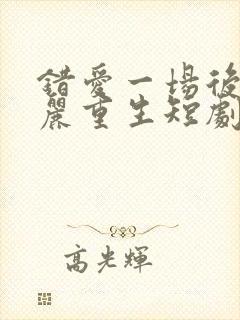 錯愛一場後
麗重生短劇
高光輝